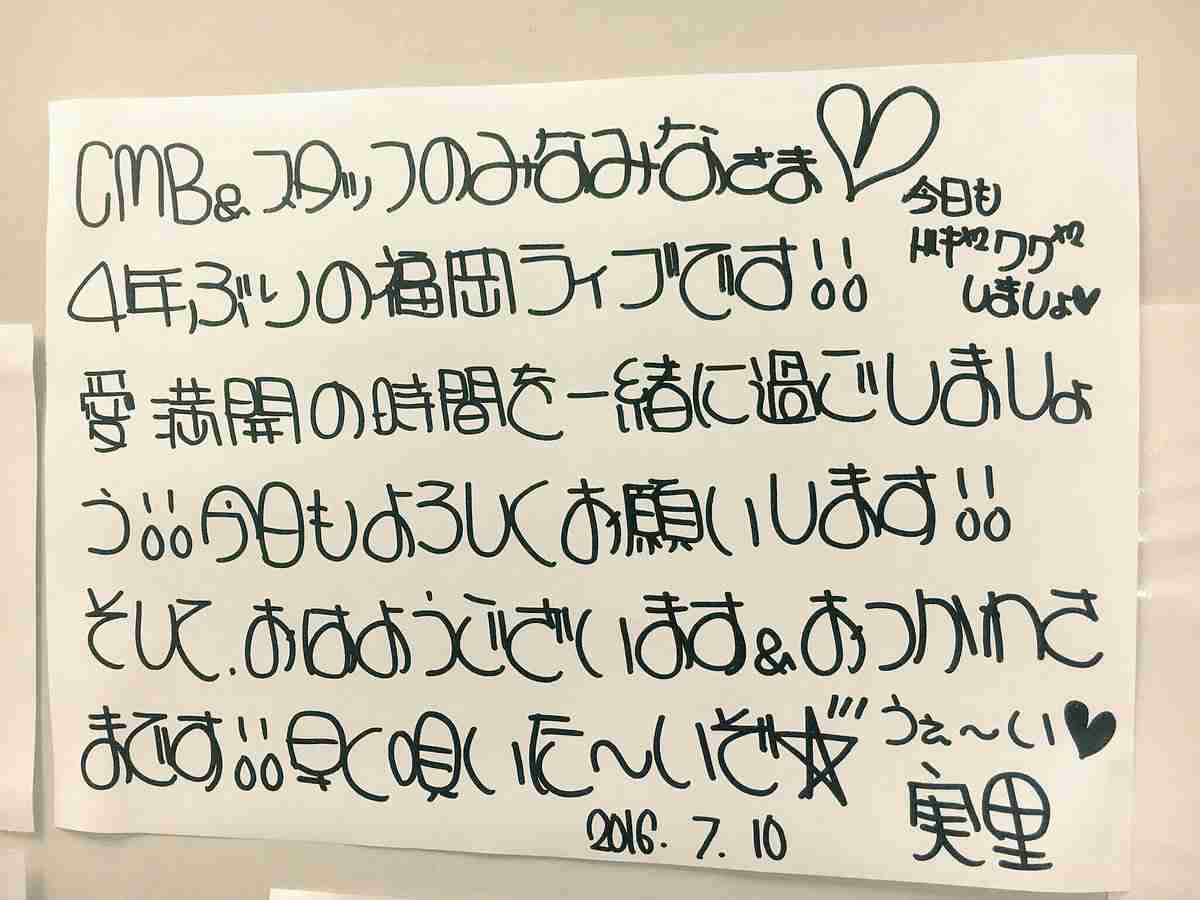 CMB&スタッフのみなみなさま♡
今日も
ドキ×2ワク×2
しましょ♥
4年ぶりの福岡ライブです!!
愛満開の時間を一緒に過ごしましょ
う!!今日もよろしくお願いします!!
そして、おはようございます&おつかれさ
まです!!早く唄いた〜いぞ☆
うぇ〜い♥
実里
2016.7.10